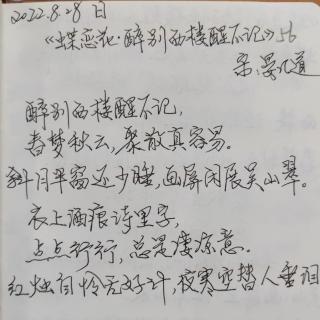 2022.8.28日
《蝶恋花·醉别西楼醒不记》56
宋:晏几道
醉别西楼醒不记,
春梦秋云,聚散真容易。
斜月半窗还少睡,画屏闲展吴山翠。
衣上酒痕诗里字,
点点行行,总是凄凉意。
红烛自怜无好计,夜寒空替人垂泪